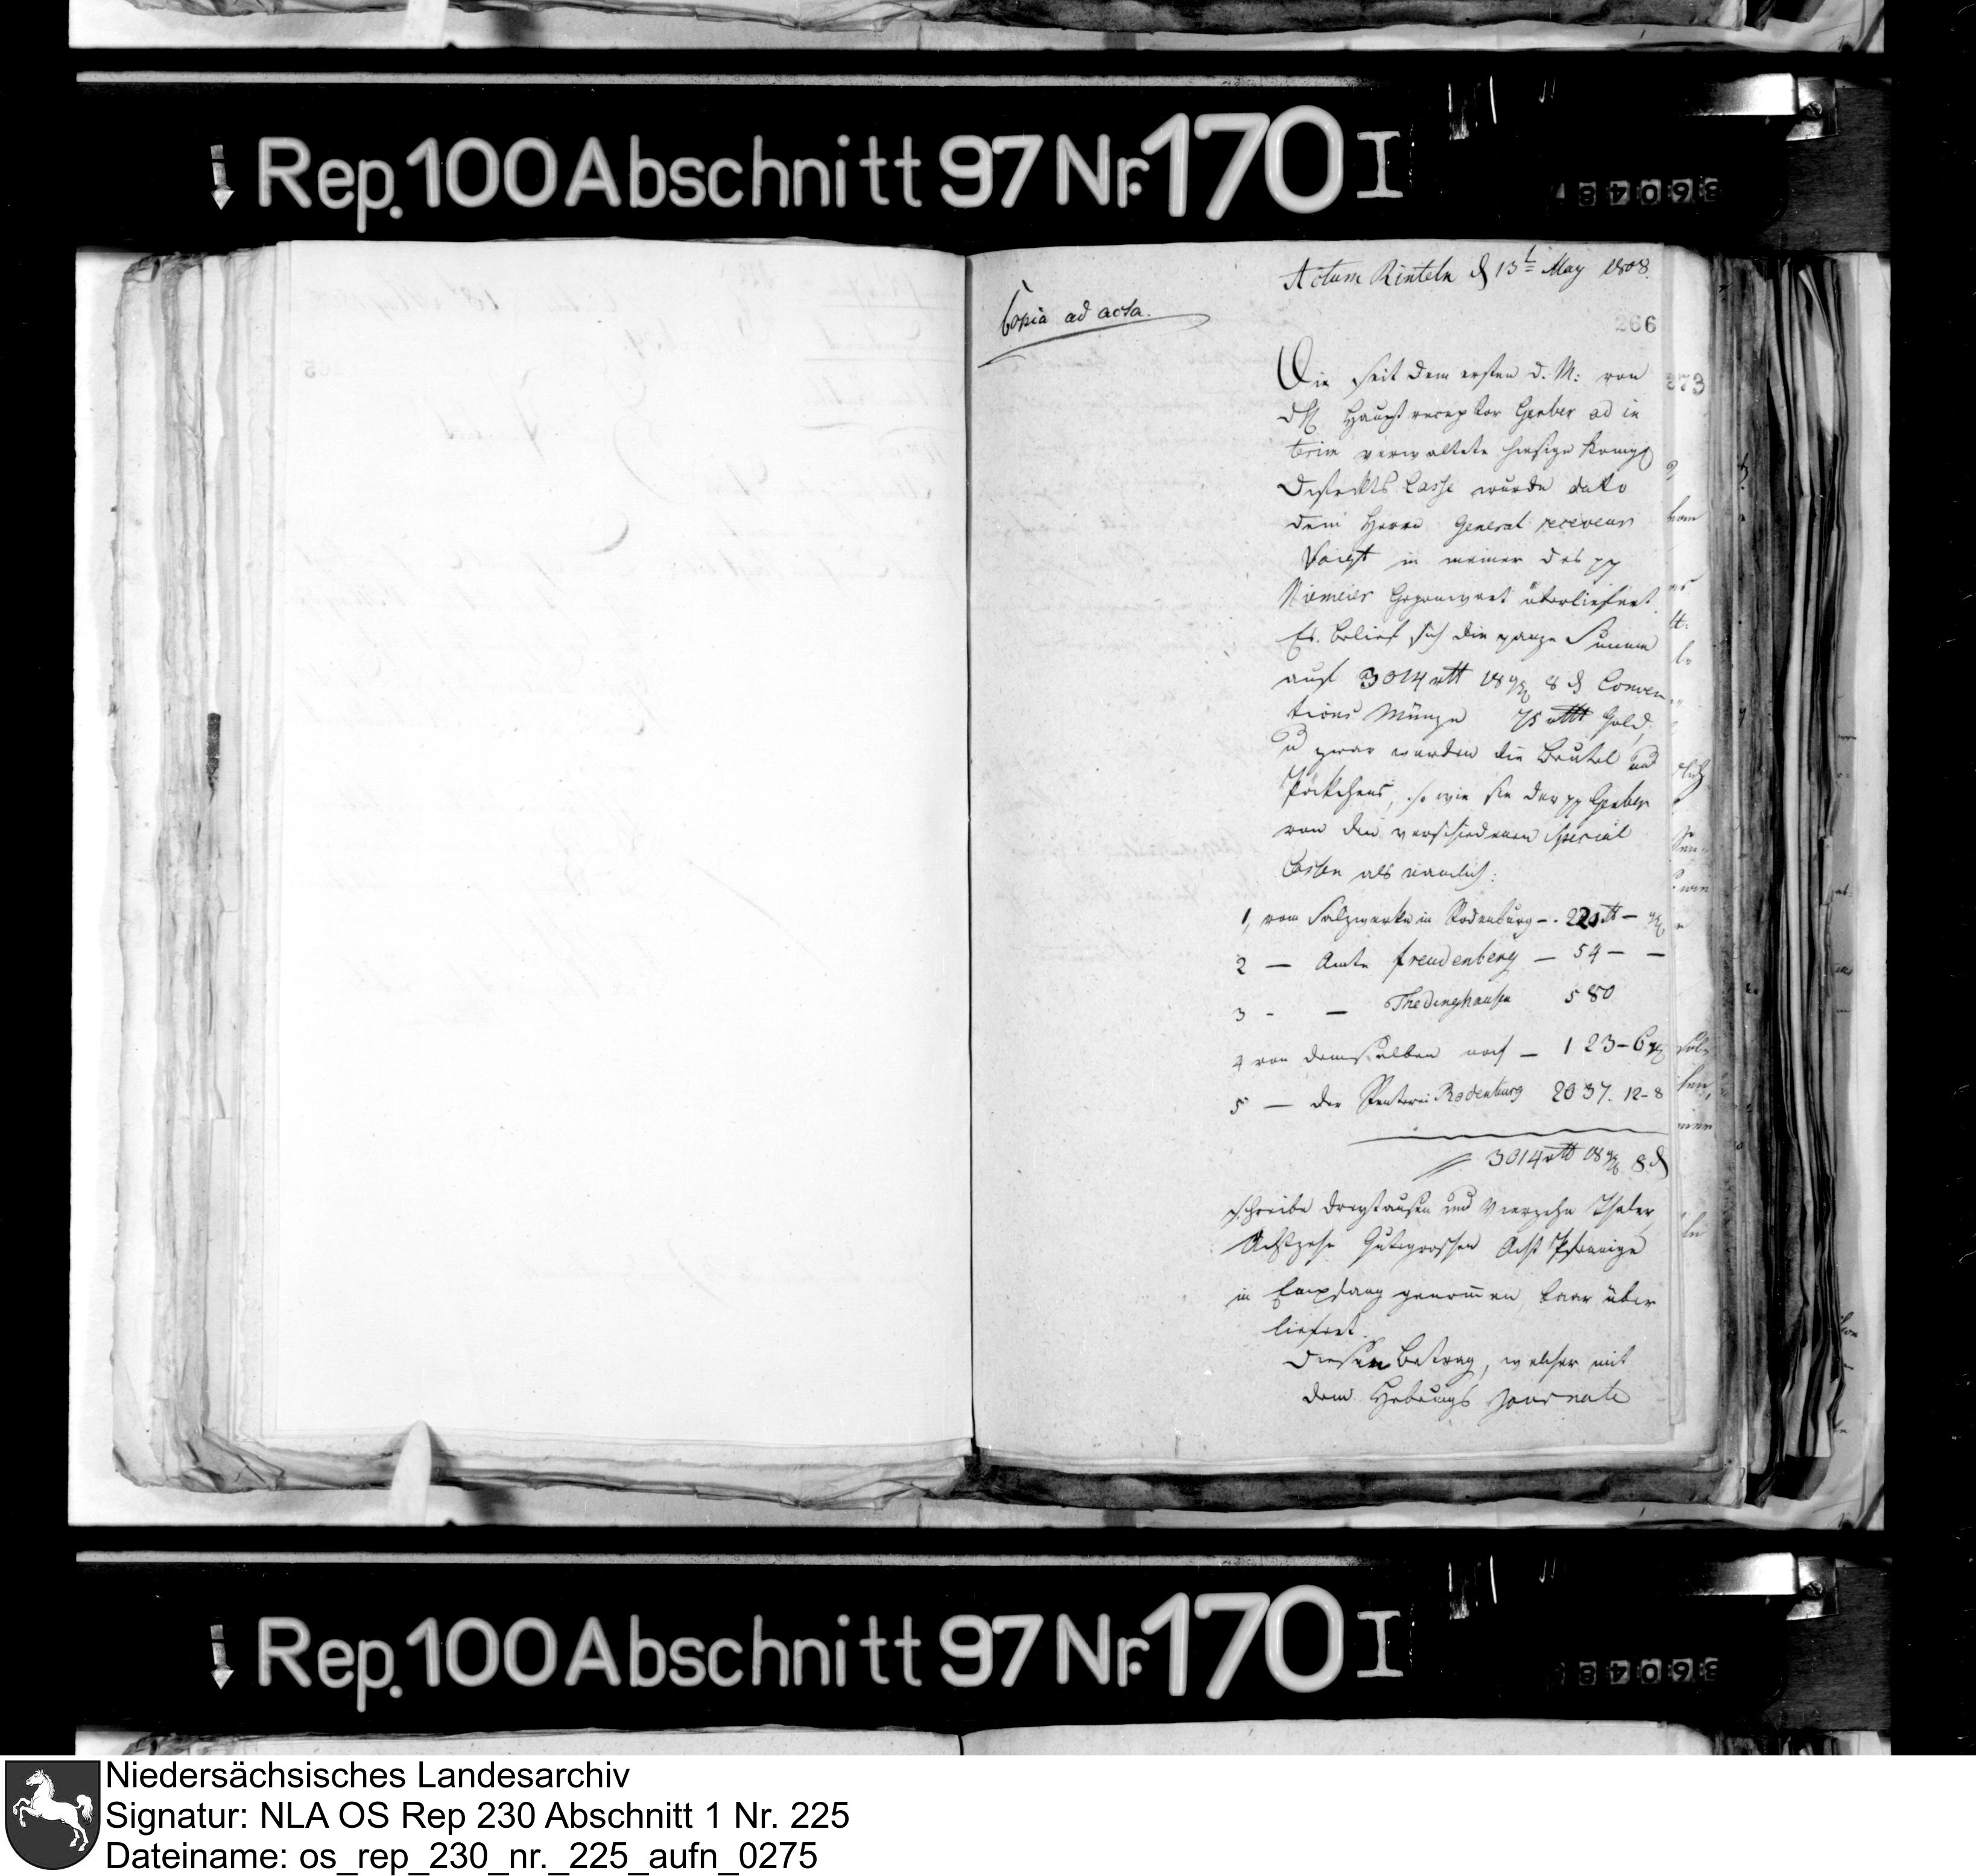 Rep. 100 Abschnitt 97 Nr. 170 I
Actum Rinteln d 13t May 1808.
Copia ad acta.
266
Die seit dem ersten d. M: von
dH Hauptreceptor Gerber ad in
terim verwaltete hiesige Königl
Districkts Casse wurde dato
dem Herrn General receveur
Voigt in meiner des pp
Niemeier Gegenwart überliefert.
Es belief sich die ganze Summe
auf 3014 rtl 18 ggr 8 d Conven
tions Münze 75 rtl Gold,
u zwar wurden die Beutel und
Päckchens, so wie sie der pp Gerber
von den verschiedenen Special
Cassen als nämlich:
1, vom Salzwerke in Rodenburg -. 220 rt - ggr
2 — Amte Freudenberg — 54 — —
3 - — Thedinghausen 580
4 von demselben noch — 123 - 6 ggr
5 — der Renterei Rodenburg 2037. 12 - 8
3014 rtl 18 ggr 8 d
schreibe dreytausen und Vierzehn Thaler
Achtzehn Gutegroschen Acht Pfennige
in Empfang genommen, baar über
liefert.
Diesen Betrag, welcher mit
dem Hebungs Journale
373
Rep. 100 Abschnitt 97 Nr. 170 I
Niedersächsisches Landesarchiv
Signatur: NLA OS Rep 230 Abschnitt 1 Nr. 225
Dateiname: os_rep_230_nr._225_aufn_0275